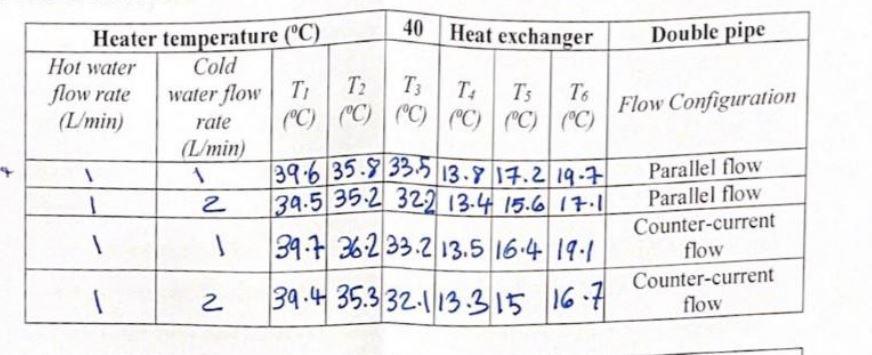 Heater temperature (⁰C) 40 Heat exchanger Double pipe
Hot water flow rate (L/min) Cold water flow rate (L/min) T₁ (⁰C) T₂ (⁰C) T₃ (⁰C) T₄ (⁰C) T₅ (⁰C) T₆ (⁰C) Flow Configuration
1 1 39.6 35.8 33.5 13.8 17.2 19.7 Parallel flow
1 2 39.5 35.2 32.2 13.4 15.6 17.1 Parallel flow
1 1 39.7 36.2 33.2 13.5 16.4 19.1 Counter-current flow
1 2 39.4 35.3 32.1 13.3 15 16.7 Counter-current flow